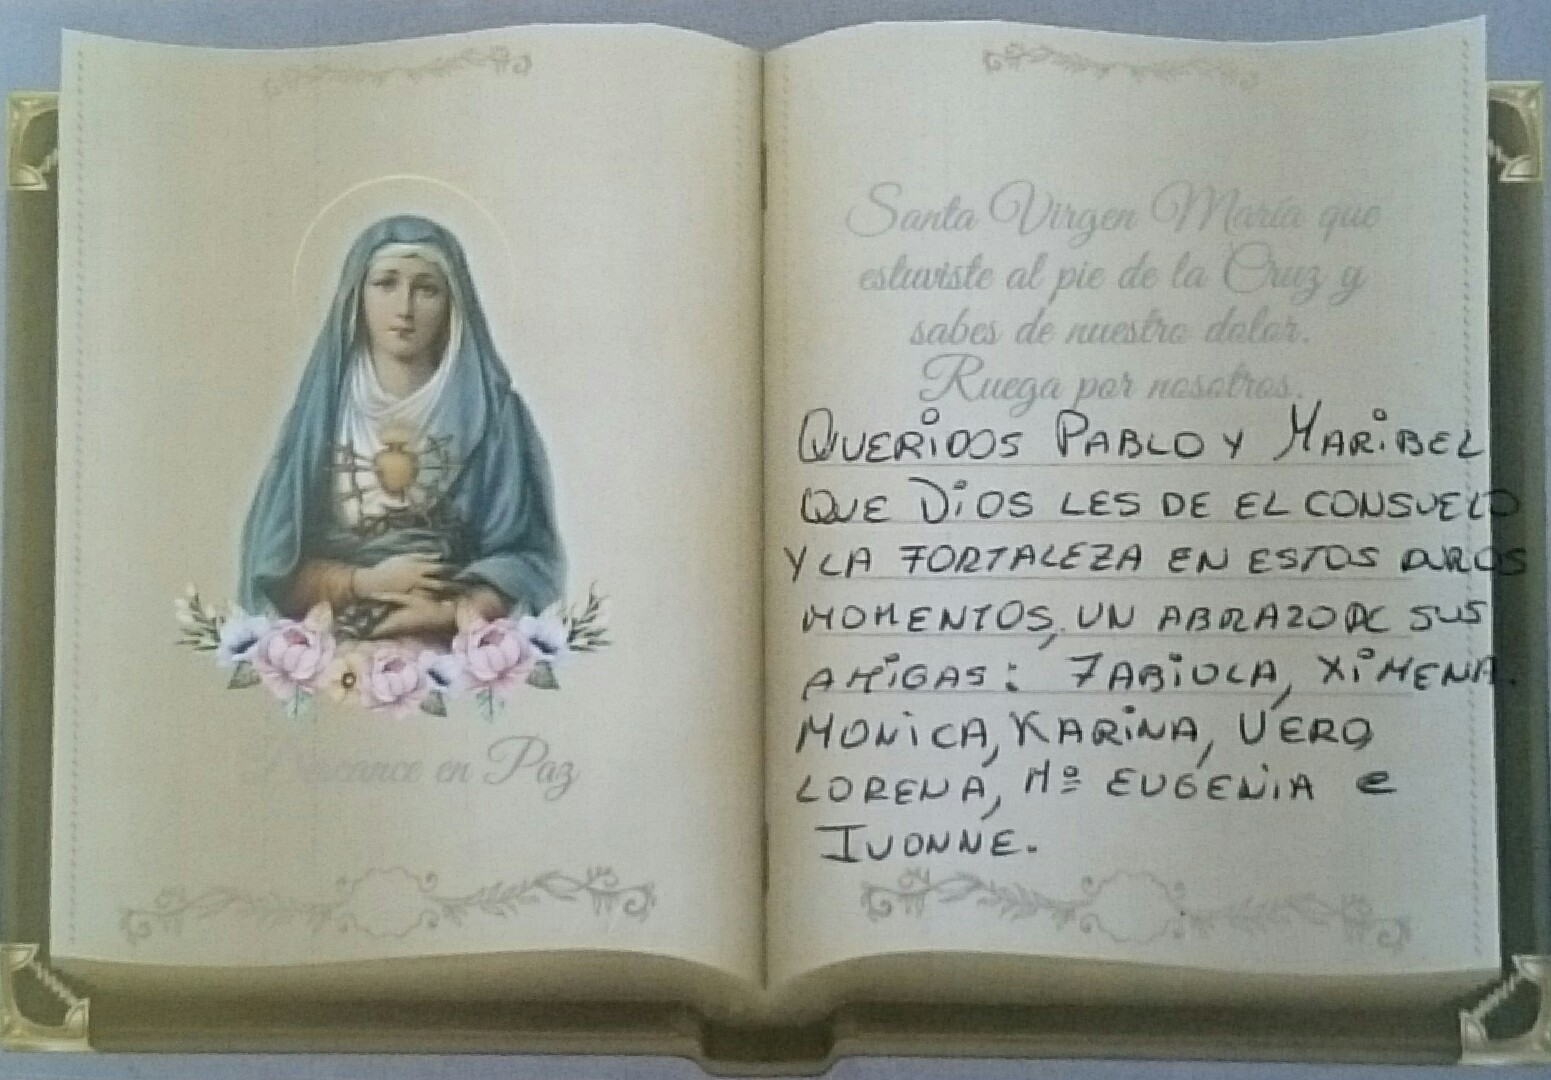 Descance en Paz
Santa Virgen María que
estuviste al pie de la Cruz y
sabes de nuestro dolor.
Ruega por nosotros.
QUERIDOS PABLO Y MARIBEL
QUE DIOS LES DE EL CONSUELO
Y LA FORTALEZA EN ESTOS DUROS
MOMENTOS, UN ABRAZO DE SUS
AMIGAS: FABIOLA, XIMENA.
MONICA, KARINA, VERO
LORENA, Mº EUGENIA e
IVONNE.